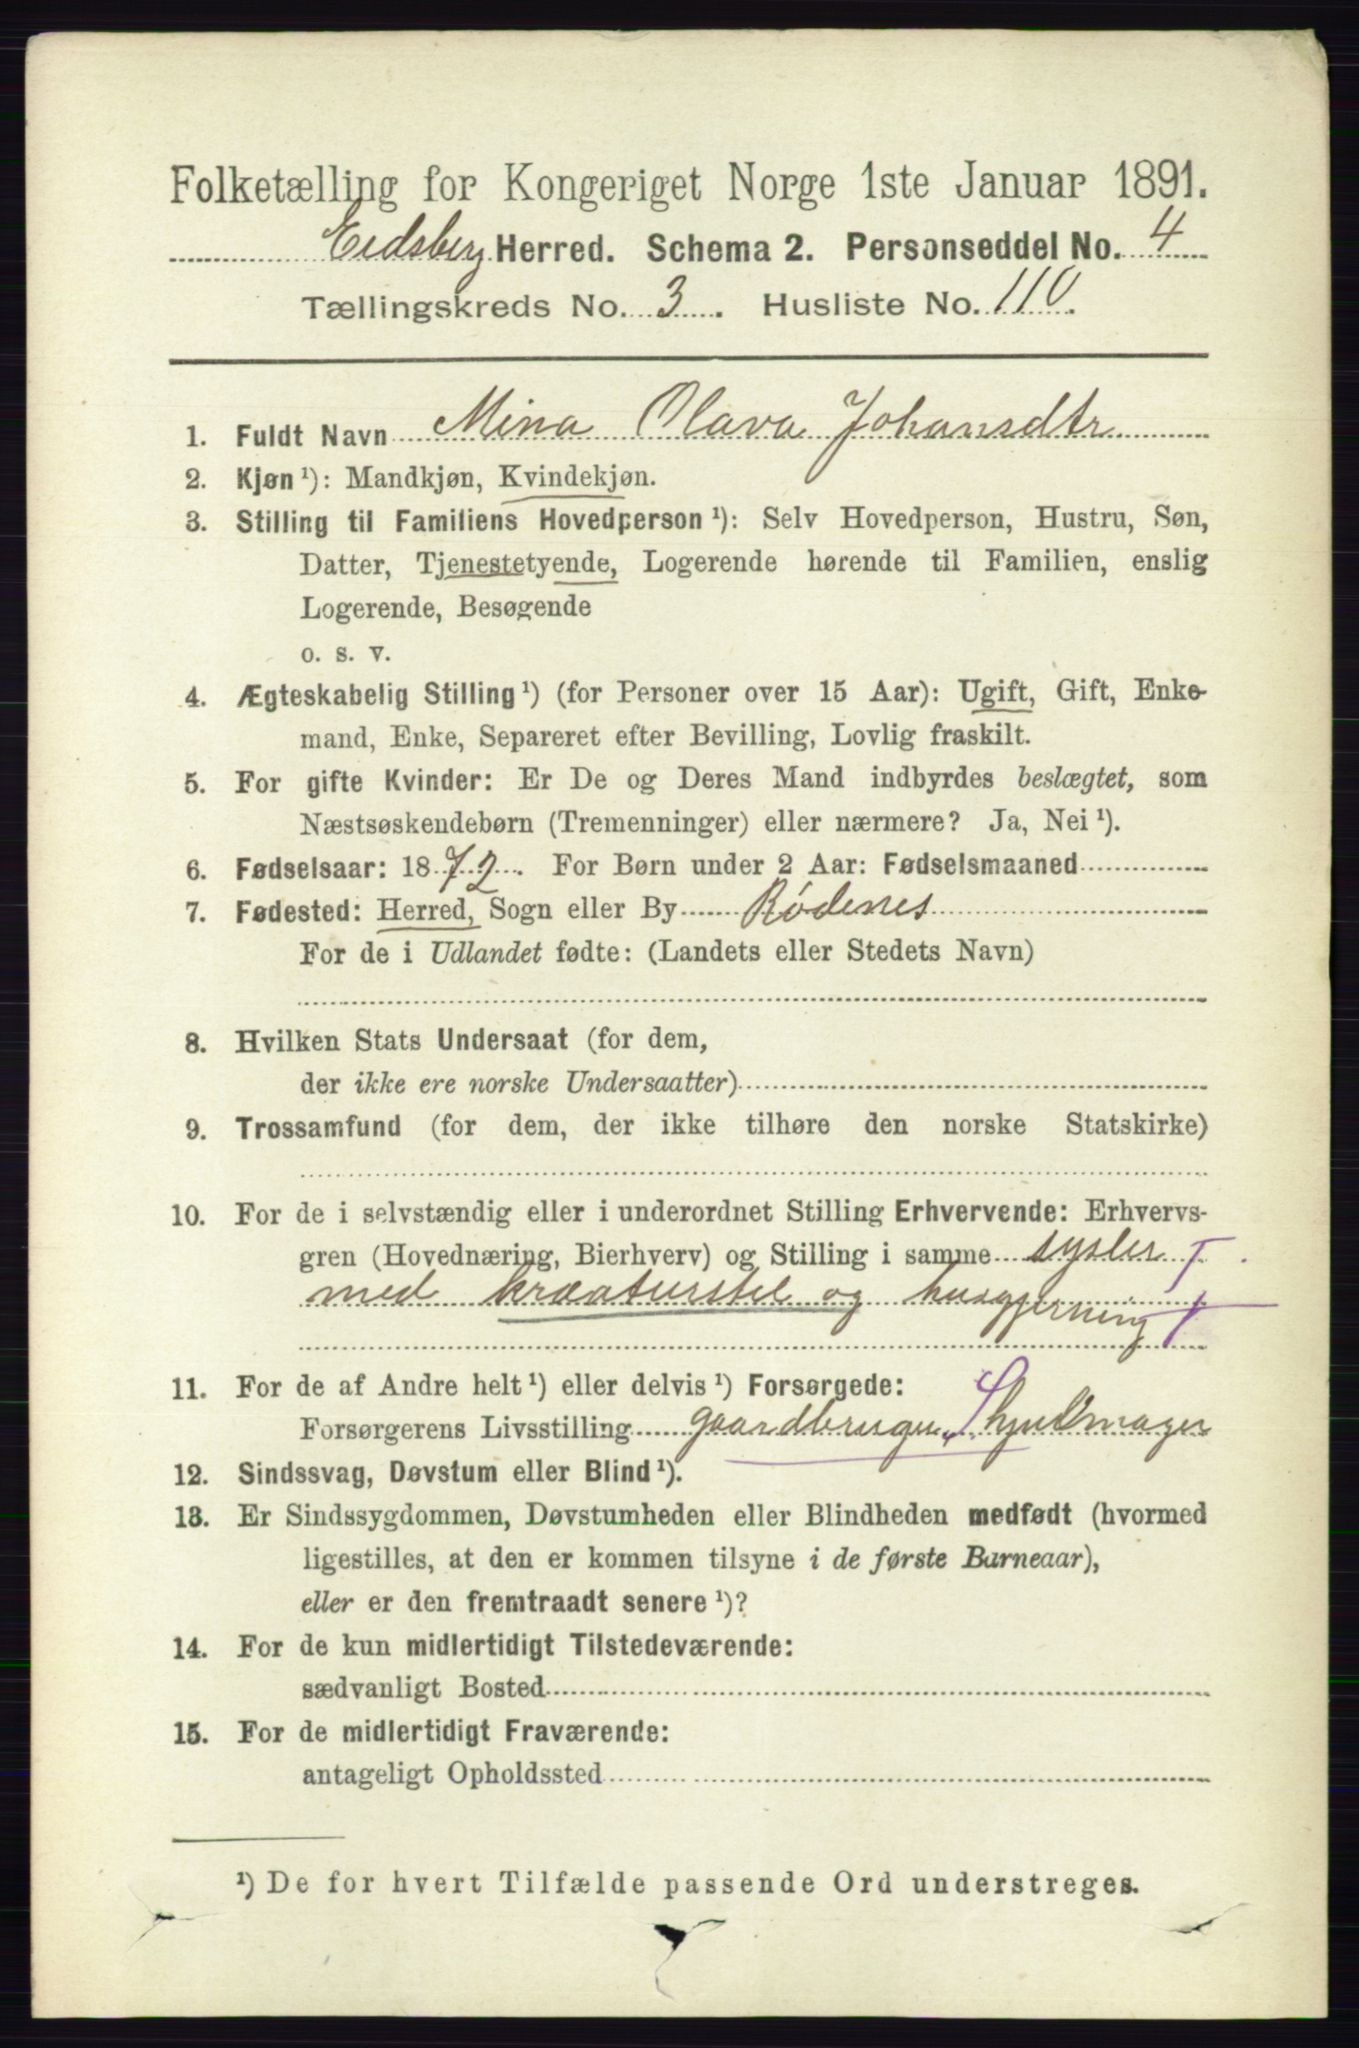 Folketælling for Kongeriget Norge 1ste Januar 1891.
Eidsberg Herred. Schema 2. Personseddel No. 4
Tællingskreds No. 3. Husliste No. 110.
1. Fuldt Navn Mina Olava Johansdtr
2. Kjøn ¹): Mandkjøn, Kvindekjøn.
3. Stilling til Familiens Hovedperson ¹): Selv Hovedperson, Hustru, Søn,
Datter, Tjenestetyende, Logerende hørende til Familien, enslig
Logerende, Besøgende
o. s. v.
4. Ægteskabelig Stilling ¹) (for Personer over 15 Aar): Ugift, Gift, Enke-
mand, Enke, Separeret efter Bevilling, Lovlig fraskilt.
5. For gifte Kvinder: Er De og Deres Mand indbyrdes beslægtet, som
Næstsøskendebørn (Tremenninger) eller nærmere? Ja, Nei ¹).
6. Fødselsaar: 1872. For Børn under 2 Aar: Fødselsmaaned
7. Fødested: Herred, Sogn eller By Rødenes
For de i Udlandet fødte: (Landets eller Stedets Navn)
8. Hvilken Stats Undersaat (for dem,
der ikke ere norske Undersaatter)
9. Trossamfund (for dem, der ikke tilhøre den norske Statskirke)
10. For de i selvstændig eller i underordnet Stilling Erhvervende: Erhvervs-
gren (Hovednæring, Bierhverv) og Stilling i samme sysler T
med kræaturstel og husgjerning T
11. For de af Andre helt ¹) eller delvis ¹) Forsørgede:
Forsørgerens Livsstilling gaardbruger, hjulmager
12. Sindssvag, Døvstum eller Blind ¹).
13. Er Sindssygdommen, Døvstumheden eller Blindheden medfødt (hvormed
ligestilles, at den er kommen tilsyne i de første Barneaar),
eller er den fremtraadt senere ¹)?
14. For de kun midlertidigt Tilstedeværende:
sædvanligt Bosted
15. For de midlertidigt Fraværende:
antageligt Opholdssted
¹) De for hvert Tilfælde passende Ord understreges.